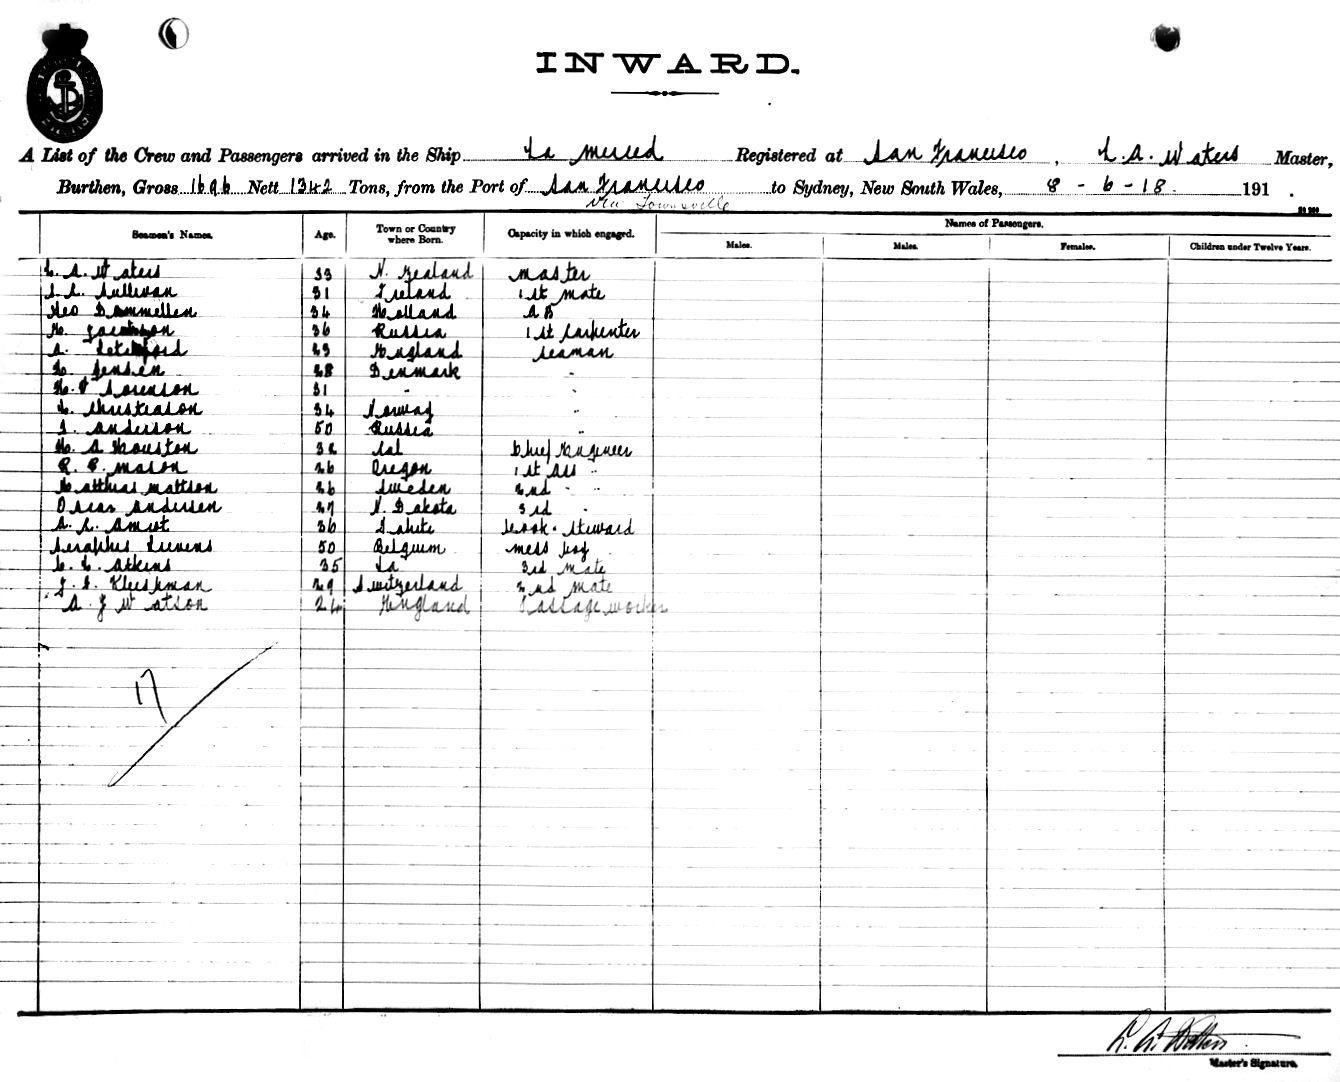 INWARD.
A List of the Crew and Passengers arrived in the Ship La Merced Registered at San Francisco, L. A. Waters Master,
Burthen, Gross 1696 Nett 1342 Tons, from the Port of San Francisco to Sydney, New South Wales, 8 - 6 - 18. 191 .
via Townsville
Seamen's Names. Age. Town or Country where Born. Capacity in which engaged. Names of Passengers.
Males. Males. Females. Children under Twelve Years.
L. A. Waters 33 N. Zealand Master
Sullivan 31 Ireland 1st Mate
Geo 34 Holland A B
36 Russia 1st Carpenter
A. 23 England Seaman
Jensen 28 Denmark "
Sorenson 31 " "
Christiason 34 Norway "
Anderson 50 Russia "
H. A Houston 32 Cal Chief Engineer
R. C. Mason 26 Oregon 1st Ass "
Matthias Mattson 26 Sweden 2nd " "
Oscar Andersen 27 N. Dakota 3rd "
A. A. Amiot 36 Tahiti Cook & Steward
Seraphus Stevens 50 Belgium Mess boy
C. C. Atkins 35 La 3rd Mate
29 Switzerland 2nd Mate
A J Watson 24 England Passage worker
17
L. A. Waters
Master's Signature.